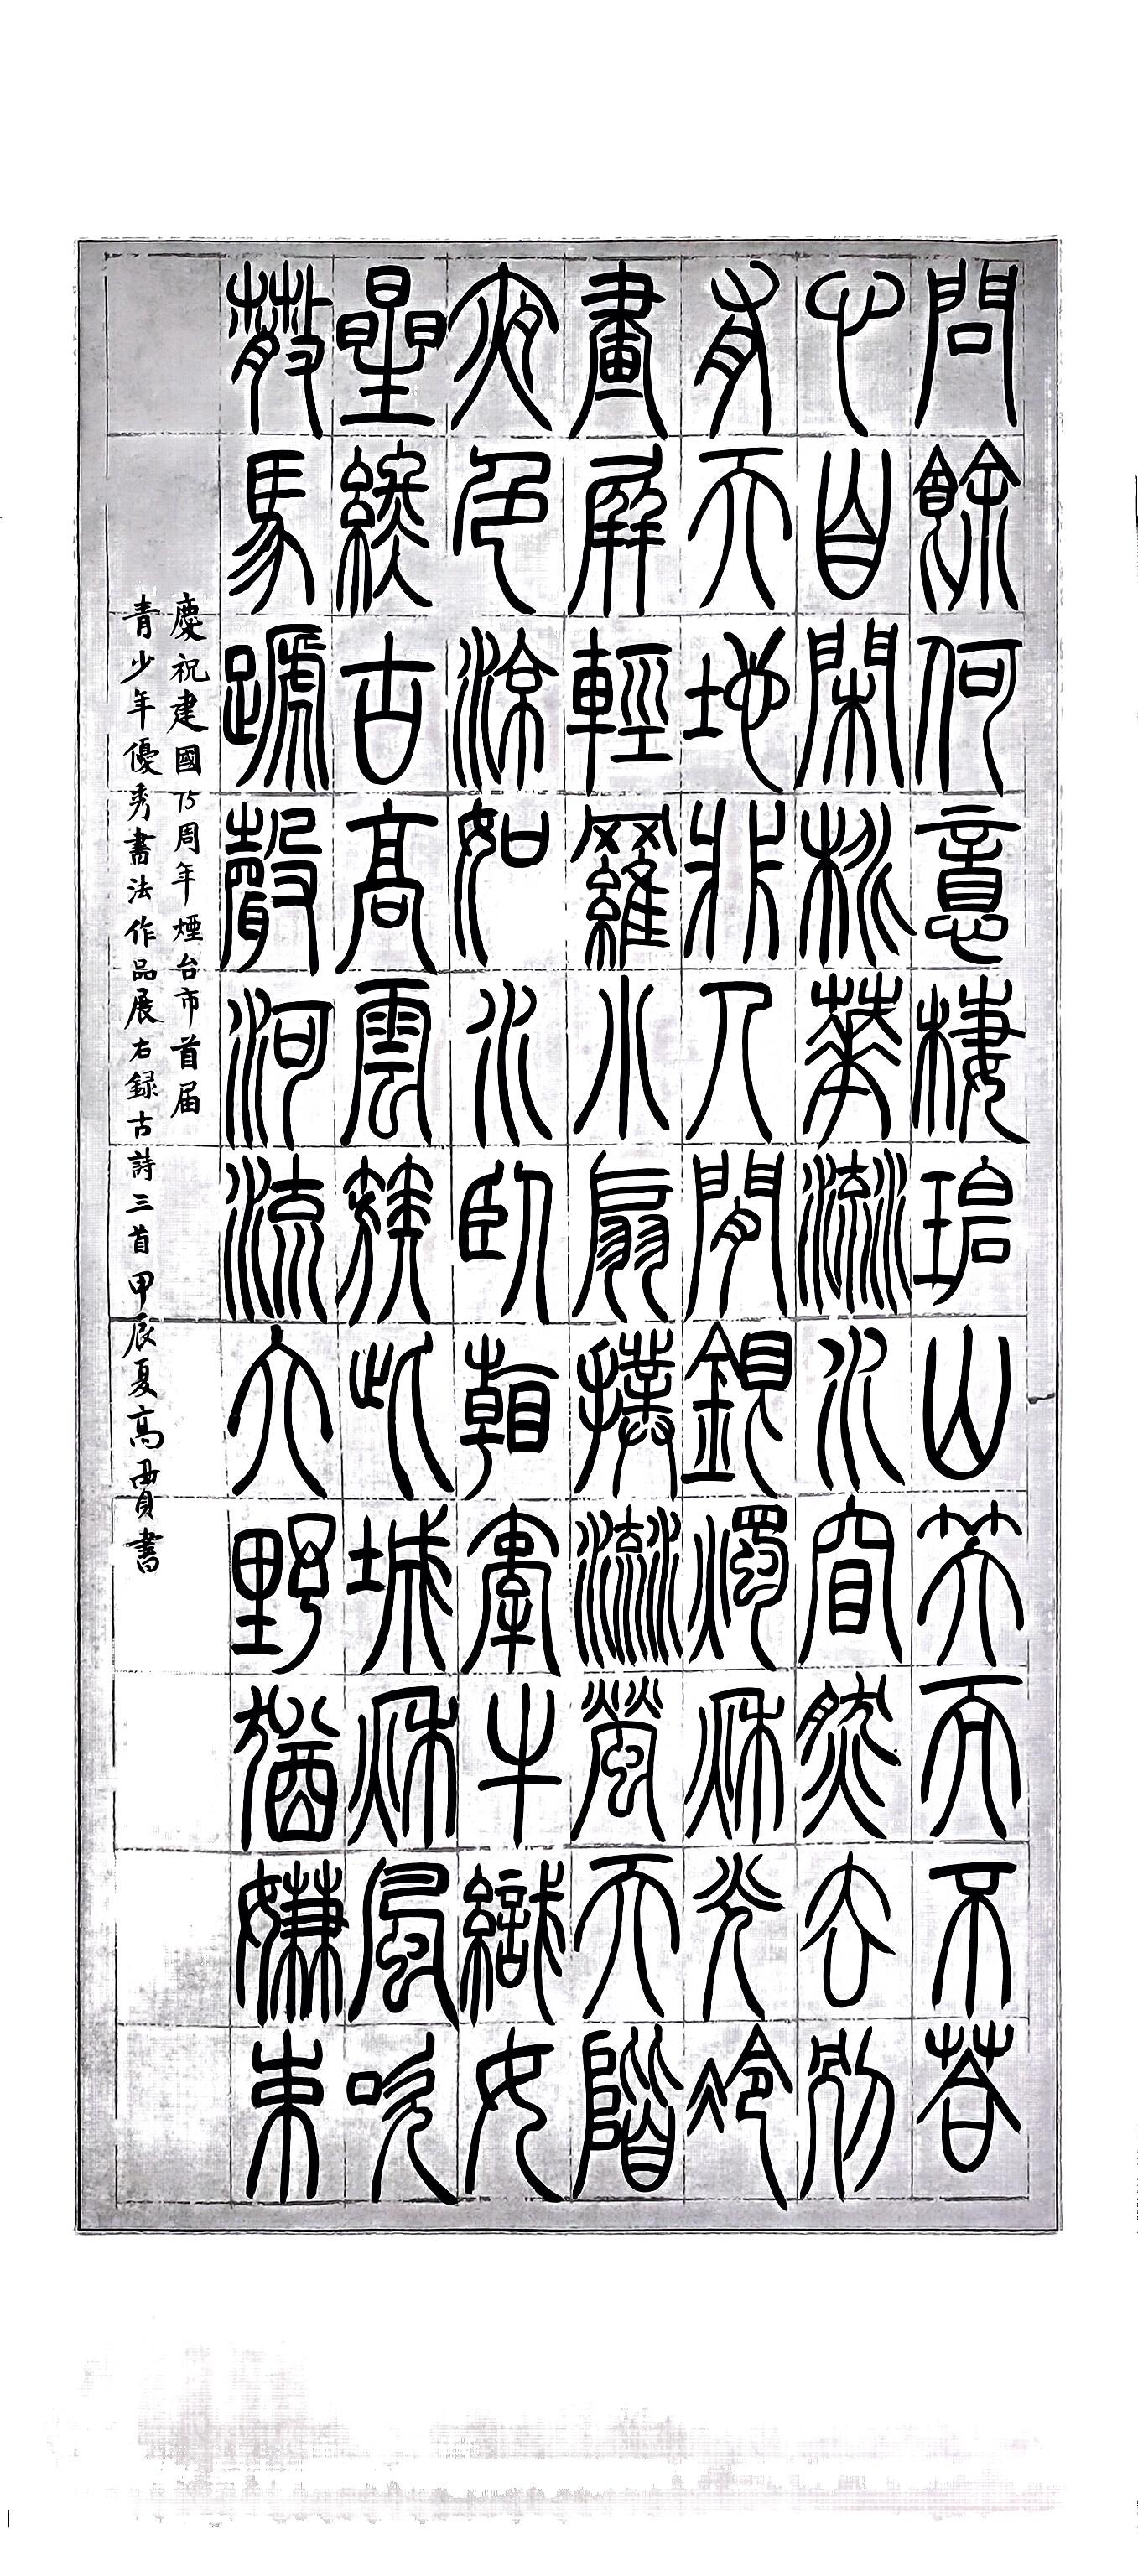 問餘何意棲碧山笑而不答
心自閑桃華流水窅然去別
有天地非人間銀燭秋光冷
畫屏輕羅小扇撲流螢天階
夜色涼如水臥看牽牛織女
星終古高雲簇此城秋風吹
散馬蹄聲河流大野猶嫌束
慶祝建國75周年煙台市首届
青少年優秀書法作品展右録古詩三首甲辰夏高書